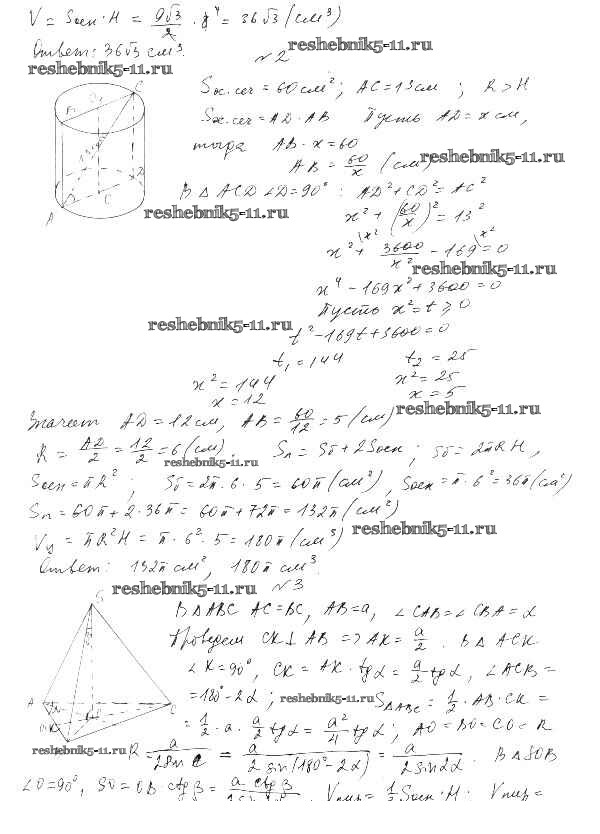 V = Sосн · H = 9√3/2 · 8⁴ = 36√3 (см³)
Ответ: 36√3 см³.
reshebnik5-11.ru
reshebnik5-11.ru
№2
Sос.сеч = 60 см²; AC = 13 см; R > H
Sос.сеч = AD · AB Пусть AD = x см,
тогда AB · x = 60
AB = 60/x (см)
reshebnik5-11.ru
В △ ACD ∠D = 90°: AD² + CD² = AC²
reshebnik5-11.ru
x² + (60/x)² = 13²
x² + 3600/x² - 169 = 0
reshebnik5-11.ru
x⁴ - 169x² + 3600 = 0
Пусть x² = t ≥ 0
reshebnik5-11.ru
t² - 169t + 3600 = 0
t₁ = 144 t₂ = 25
x² = 144 x² = 25
x = 12 x = 5
reshebnik5-11.ru
Значит AD = 12 см, AB = 60/12 = 5 (см)
R = AD/2 = 12/2 = 6 (см). Sп = Sб + 2Sосн; Sб = 2πRH,
reshebnik5-11.ru
Sосн = πR²; Sб = 2π · 6 · 5 = 60π (см²), Sосн = π · 6² = 36π (см²)
Sп = 60π + 2 · 36π = 60π + 72π = 132π (см²)
reshebnik5-11.ru
Vц = πR²H = π · 6² · 5 = 180π (см³)
Ответ: 132π см², 180π см³.
reshebnik5-11.ru
№3
В △ ABC AC = BC, AB = a, ∠CAB = ∠CBA = α
Проведем CK ⊥ AB => AK = a/2. В △ ACK
∠K = 90°, CK = AK · tgα = a/2 tgα, ∠ACB =
= 180° - 2α; S△ABC = 1/2 · AB · CK =
reshebnik5-11.ru
= 1/2 · a · a/2 tgα = a²/4 tgα; AO = BO = CO = R
reshebnik5-11.ru
R = a/2sin C = a/2sin(180° - 2α) = a/2sin2α. В △ SOB
∠O = 90°, SO = OB ctgβ = a ctgβ
Vпир = 1/3 Sосн · H. Vпир =